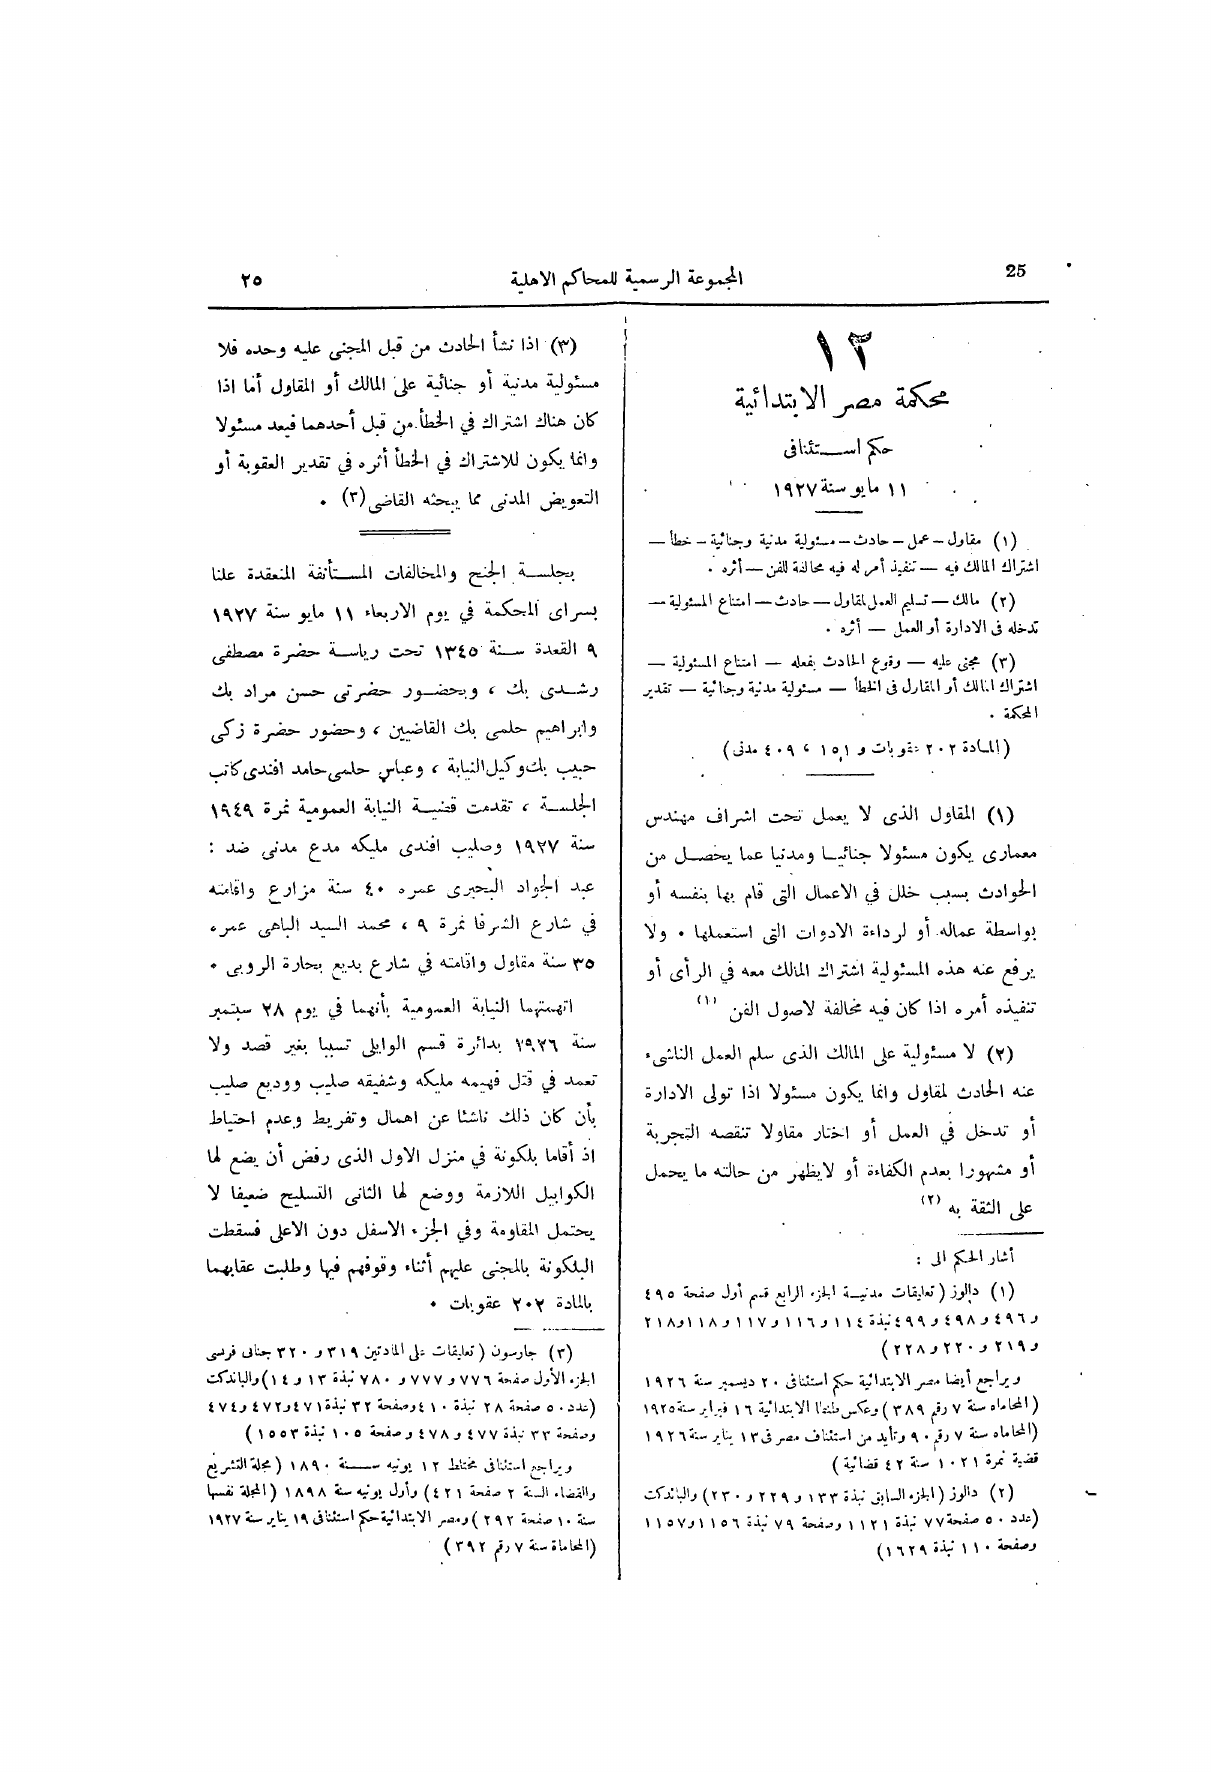 25
المجموعة الرسمية للمحاكم الاهلية
٢٥
١٣
محكمة مصر الابتدائية
حكم استئنافى
١١ مايو سنة ١٩٢٧
(١) مقاول – عمل – حادث – مسئولية مدنية وجنائية – خطأ –
اشتراك المالك فيه – تنفيذ أمر له فيه مخالفة للفن – أثره .
(٢) مالك – تسليم العمل لمقاول – حادث – امتناع المسئولية –
تدخله فى الادارة أو العمل – أثره .
(٣) مجنى عليه – وقوع الحادث بفعله – امتناع المسئولية –
اشتراك المالك أو المقاول فى الخطأ – مسئولية مدنية وجنائية – تقدير
المحكمة .
(المادة ٢٠٢ عقوبات و ١٥١ ، ٤٠٩ مدنى)
(١) المقاول الذى لا يعمل تحت اشراف مهندس
معمارى يكون مسئولا جنائيا ومدنيا عما يحصل من
الحوادث بسبب خلل في الاعمال التى قام بها بنفسه أو
بواسطة عماله أو لرداءة الادوات التى استعملها . ولا
يرفع عنه هذه المسئولية اشتراك المالك معه في الرأى أو
تنفيذه أمره اذا كان فيه مخالفة لاصول الفن (١)
(٢) لا مسئولية على المالك الذى سلم العمل الناشىء
عنه الحادث لمقاول وانما يكون مسئولا اذا تولى الادارة
أو تدخل في العمل أو اختار مقاولا تنقصه التجربة
أو مشهورا بعدم الكفاءة أو لايظهر من حالته ما يحمل
على الثقة به (٢)
أشار الحكم الى :
(١) دالوز (تعليقات مدنيـة الجزء الرابع قسم أول صفحة ٤٩٥
و٤٩٦ و٤٩٨ و٤٩٩ نبذة ١١٤ و١١٦ و١١٧ و١١٨ و٢١٨
و٢١٩ و٢٢٠ و٢٢٨)
ويراجع أيضا مصر الابتدائية حكم استئنافى ٢٠ ديسمبر سنة ١٩٢٦
(المحاماه سنة ٧ رقم ٣٨٩) وعكس طنطا الابتدائية ١٦ فبراير سنة ١٩٢٥
(المحاماه سنة ٧ رقم ٩٠ وتأيد من استئناف مصر فى ١٣ يناير سنة ١٩٢٦
قضية نمرة ١٠٢١ سنة ٤٢ قضائية)
(٢) دالوز (الجزء السابق نبذة ١٣٣ و٢٢٩ و٢٣٠) والباندكت
(عدد ٥٠ صفحة ٧٧ نبذة ١١٢١ وصفحة ٧٩ نبذة ١١٥٦ و١١٥٧
وصفحة ١١٠ نبذة ١٦٢٩)
(٣) اذا نشأ الحادث من قبل المجنى عليه وحده فلا
مسئولية مدنية أو جنائية على المالك أو المقاول أما اذا
كان هناك اشتراك في الخطأ من قبل أحدهما فيعد مسئولا
وانما يكون للاشتراك في الخطأ أثره في تقدير العقوبة أو
التعويض المدنى مما يبحثه القاضى (٣) .
بجلسـة الجنح والمخالفات المستأنفة المنعقدة علنا
بسراى المحكمة في يوم الاربعاء ١١ مايو سنة ١٩٢٧
٩ القعدة سـنة ١٣٤٥ تحت رياسة حضرة مصطفى
رشدى بك ، وبحضور حضرتى حسن مراد بك
وابراهيم حلمى بك القاضيين ، وحضور حضرة زكى
حبيب بك وكيل النيابة ، وعباس حلمى حامد افندى كاتب
الجلسـة ، تقدمت قضيـة النيابة العمومية نمرة ١٩٤٩
سنة ١٩٢٧ وصليب افندى مليكه مدع مدنى ضد :
عبد الجواد البحيرى عمره ٤٠ سنة مزارع واقامته
في شارع الشرفا نمرة ٩ ، محمد السيد الباهى عمره
٣٥ سنة مقاول واقامته في شارع بديع بحارة الروبى .
اتهمتهما النيابة العمومية بأنهما في يوم ٢٨ سبتمبر
سنة ١٩٢٦ بدائرة قسم الوايلى تسببا بغير قصد ولا
تعمد في قتل فهيمه مليكه وشفيقه صليب ووديع صليب
بأن كان ذلك ناشئا عن اهمال وتفريط وعدم احتياط
اذ أقاما بلكونة في منزل الاول الذى رفض أن يضع لها
الكوابيل اللازمة ووضع لها الثانى التسليح ضعيفا لا
يحتمل المقاومة وفي الجزء الاسفل دون الاعلى فسقطت
البلكونة بالمجنى عليهم أثناء وقوفهم فيها وطلبت عقابهما
بالمادة ٢٠٢ عقوبات .
(٣) جارسون (تعليقات على المادتين ٣١٩ و٣٢٠ جنائى فرنسى
الجزء الأول صفحة ٧٧٦ و٧٧٧ و٧٨٠ نبذة ١٣ و١٤) والباندكت
(عدد ٥٠ صفحة ٢٨ نبذة ٤١٠ وصفحة ٣٢ نبذة ٤٧١ و٤٧٢ و٤٧٤
وصفحة ٣٣ نبذة ٤٧٧ و٤٧٨ وصفحة ١٠٥ نبذة ١٥٥٣)
ويراجع استئنافى مختلط ١٢ يونيه سـنة ١٨٩٠ (مجلة التشريع
والقضاء السنة ٢ صفحة ٤٢١) وأول يونيه سنة ١٨٩٨ (المجلة نفسها
سنة ١٠ صفحة ٢٩٢) ومصر الابتدائية حكم استئنافى ١٩ يناير سنة ١٩٢٧
(المحاماة سنة ٧ رقم ٣٩٢)